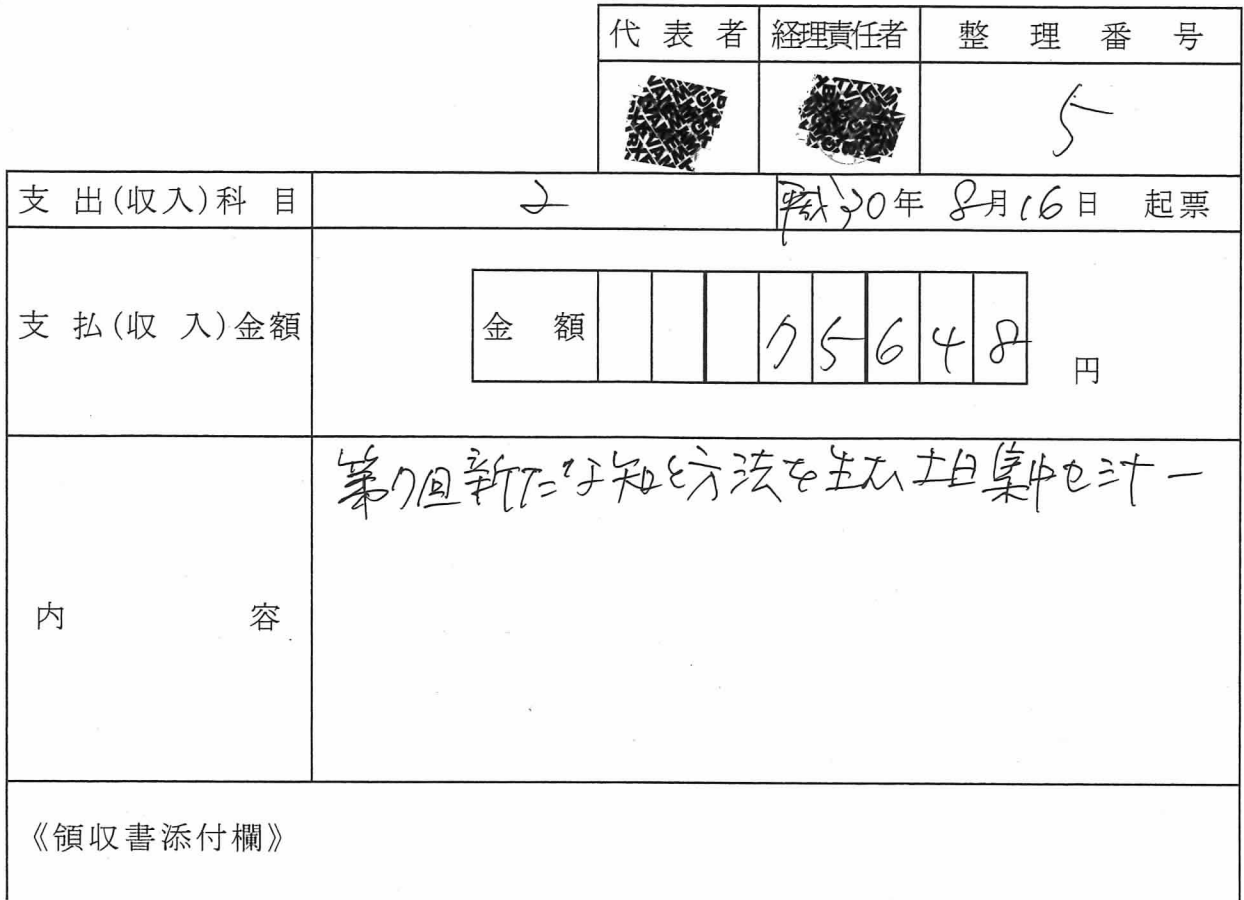 代表者 経理責任者 整理番号
5
支出(収入)科目 2 平成30年 8月16日 起票
支払(収入)金額 金額 75648 円
内容 第7回新たな知と方法を生む土日集中セミナー
《領収書添付欄》